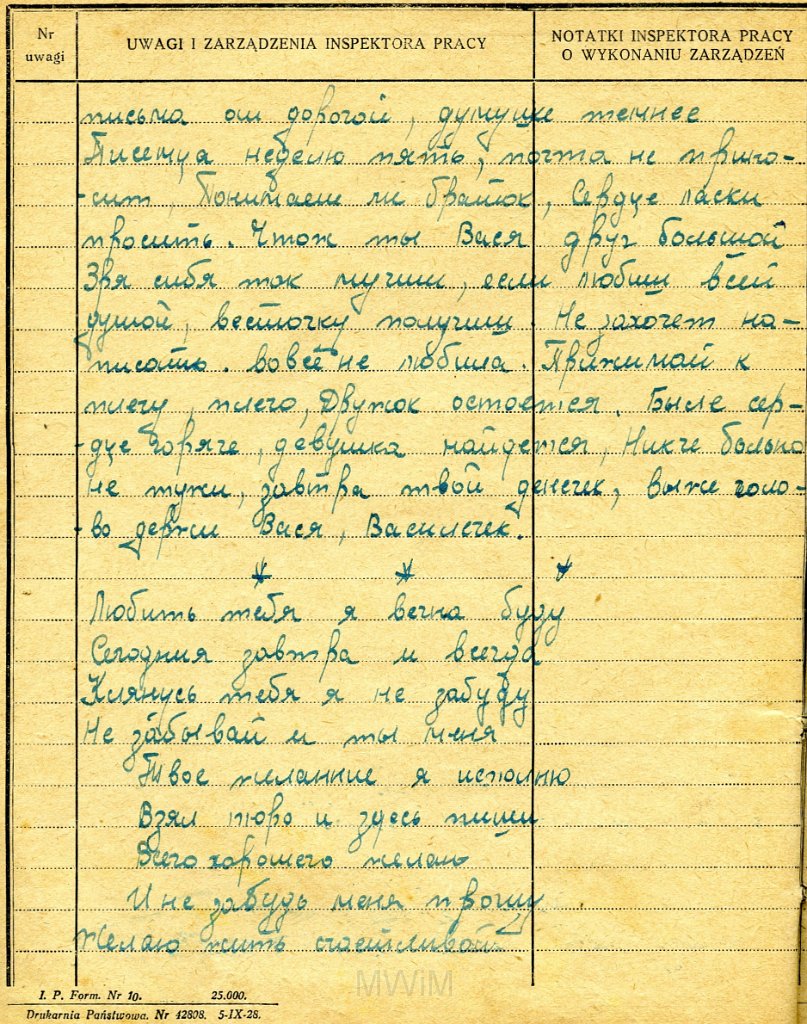 Nr
uwagi
UWAGI I ZARZĄDZENIA INSPEKTORA PRACY
NOTATKI INSPEKTORA PRACY
O WYKONANIU ZARZĄDZEŃ
письма от дорогой, думушке темнее
Писемца неделю пять, почта не прино-
-сит, Понимаеш ли браток, Сердце ласки
просить. Чтож ты Вася друг большой
Зря сибя так мучиш, если любиш всей
душой, весточку получиш. Не захочет на-
писать. вовсе не любила. Прижимай к
плечу, плечо, Дружок остается. Было сер-
-дце горяче, девушка найдется, Никче больно
не тужи, завтра твой денечек, выже голо-
-во держи Вася, Василечек.
Любить тебя я вечна буду
Сегодния завтра и всегда
Клянусь тебя я не забуду
Не забывай и ты меня
Твое желанние я исполню
Взял пюро и здесь пиши
Всего хорошего желаю
И не забудь меня прошу
Желаю жить счастливой
MWiM
I. P. Form. Nr 10. 25.000.
Drukarnia Państwowa. Nr 42808. 5-IX-28.